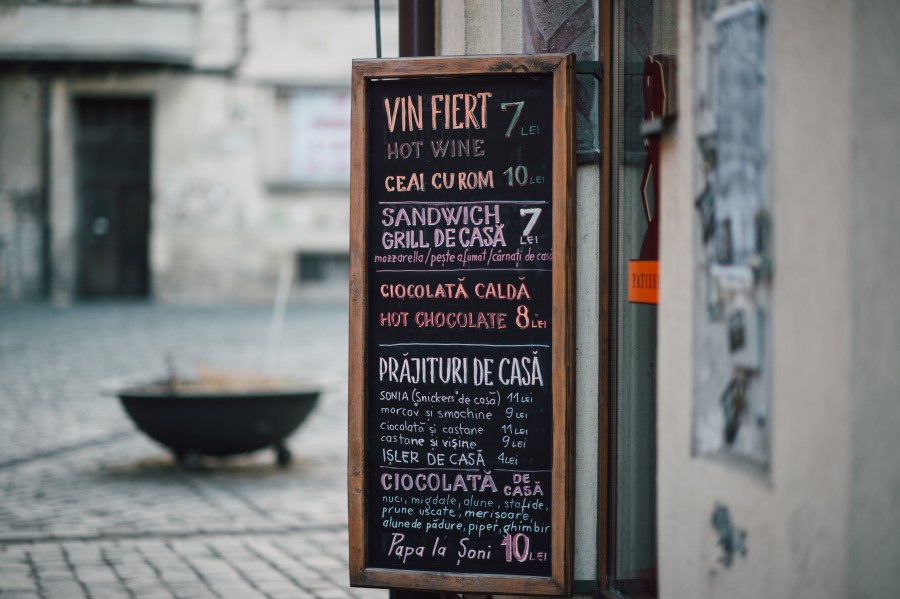 VIN FIERT 7 LEI
HOT WINE
CEAI CU ROM 10 LEI
SANDWICH 7 LEI
GRILL DE CASĂ
mozzarella/pește afumat/cârnați de casă
CIOCOLATĂ CALDĂ
HOT CHOCOLATE 8 LEI
PRĂJITURI DE CASĂ
SONIA (Snickers" de casă) 11 LEI
morcov și smochine 9 LEI
ciocolată și castane 11 LEI
castane și vișine 9 LEI
IȘLER DE CASĂ 4 LEI
CIOCOLATĂ DE CASĂ
nuci, migdale, alune, stafide,
prune uscate, merișoare,
alune de pădure, piper, ghimbir
Papa la Șoni 10 LEI
PATISS